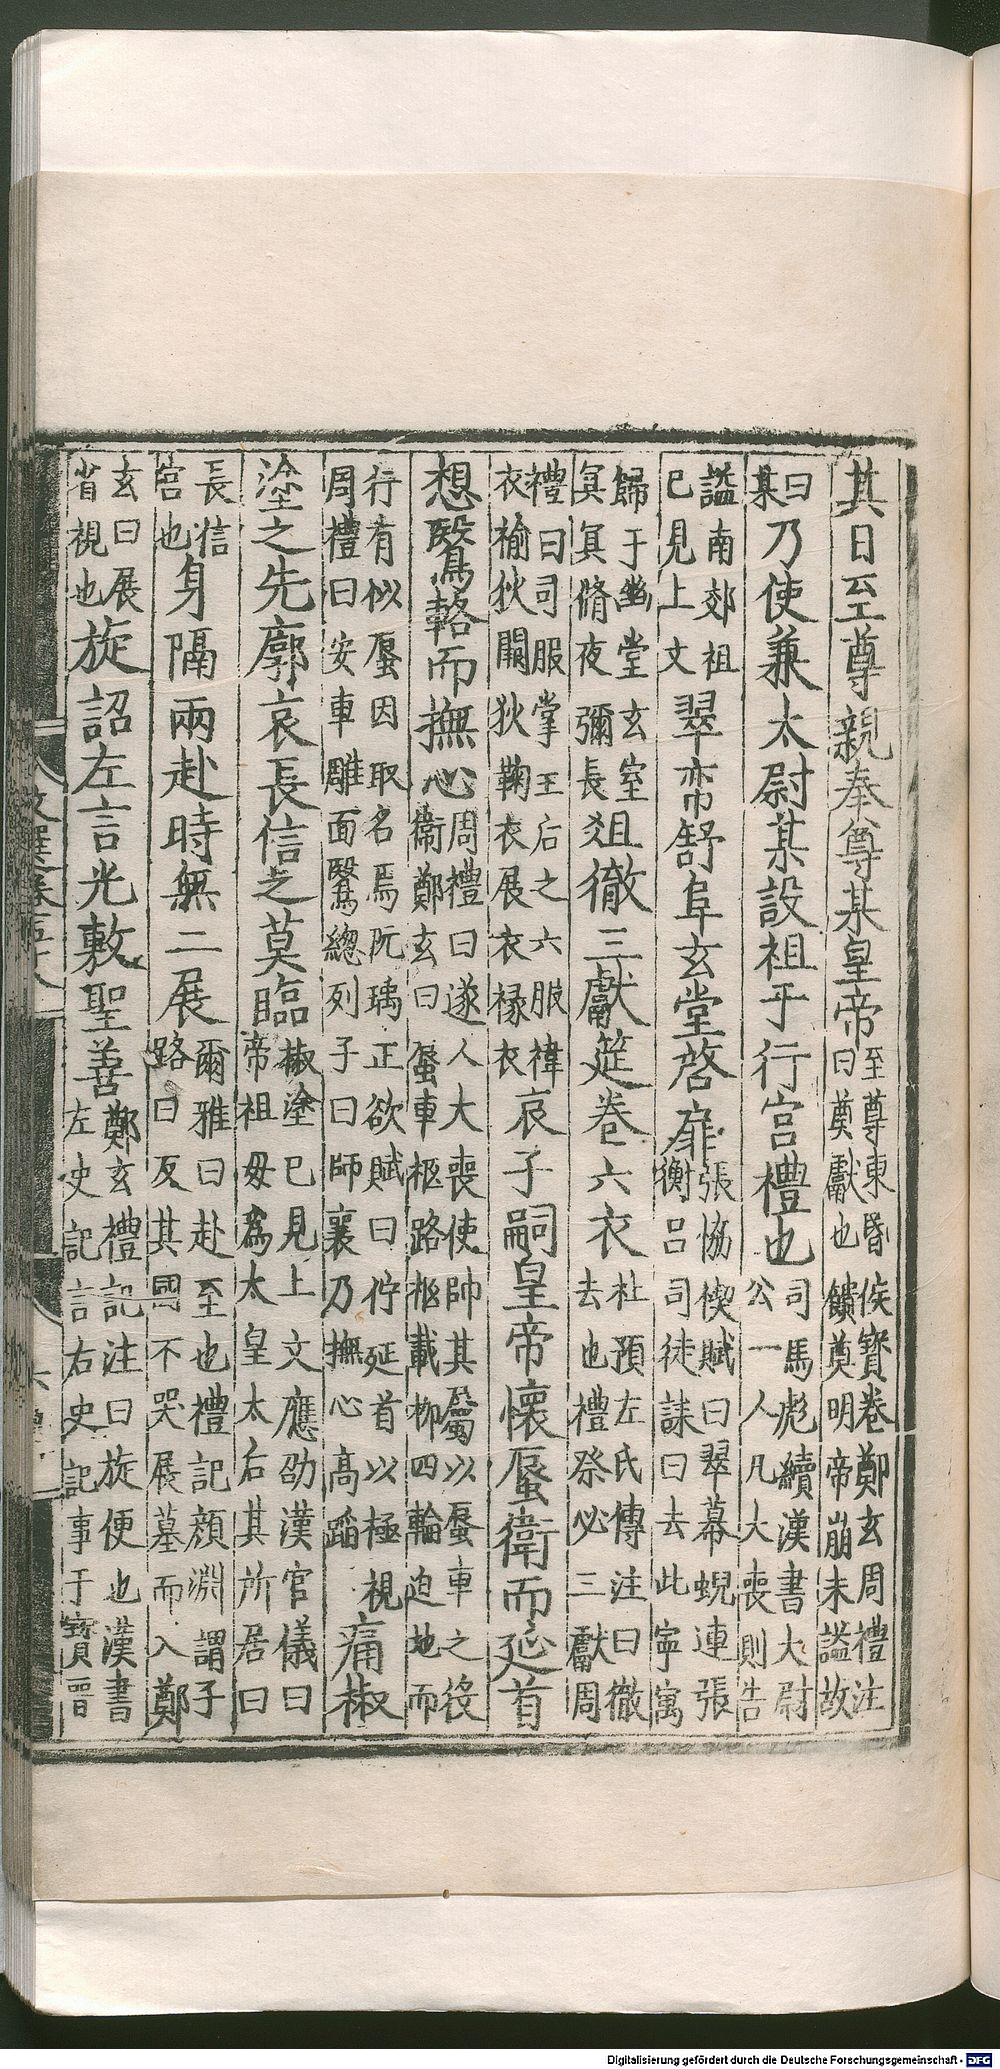 其日至尊親奉尊某皇帝至尊東昏侯寳卷鄭玄周禮注曰奠獻也饋奠明帝崩未謚故
曰某乃使兼太尉某設祖于行宮禮也司馬彪續漢書大尉公一人凡大喪則告
謚南郊祖已見上文翠帟舒阜玄堂啓扉張協禊賦曰翠幕蜺連張衡呂司徒誄曰去此寧㝢
歸于幽堂玄室冥冥脩夜彌長俎徹三獻筵卷六衣杜預左氏傳注曰徹去也禮祭必三獻周
禮曰司服掌王后之六服褘衣褕狄闕狄鞠衣展衣椽衣哀子嗣皇帝懷蜃衛而延首
想鷖輅而撫心周禮曰遂人大喪使帥其屬以蜃車之役鄭玄曰蜃車柩路柩載柳四輪迫地而
行有似蜃因取名焉阮瑀正欲賦曰佇延首以極視周禮曰安車雕面鷖總列子曰師襄乃撫心高蹈痛椒
塗之先廓哀長信之莫臨椒塗已見上文應劭漢官儀曰帝祖母爲太皇太后其所居曰
長信宮也身隔兩赴時無二展爾雅曰赴至也禮記顔淵謂子路曰反其國不哭展墓而入鄭
玄曰展省視也旋詔左言光敷聖善鄭玄禮記注曰旋便也漢書左史記言右史記事于寳晉
文選卷五十八
六
Digitalisierung gefördert durch die Deutsche Forschungsgemeinschaft - DFG